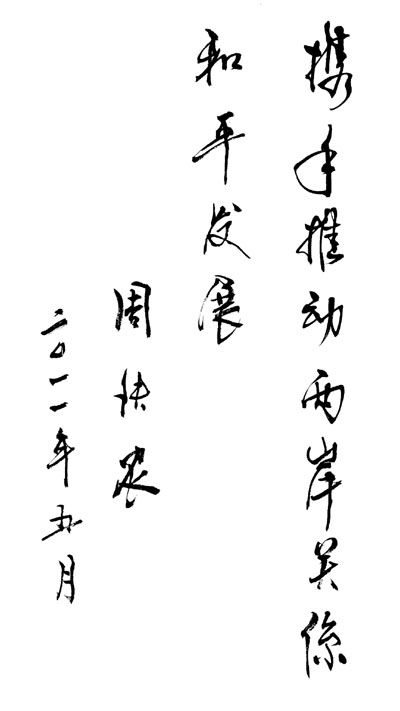 携手推动两岸关係
和平发展
周铁农
二〇一一年五月